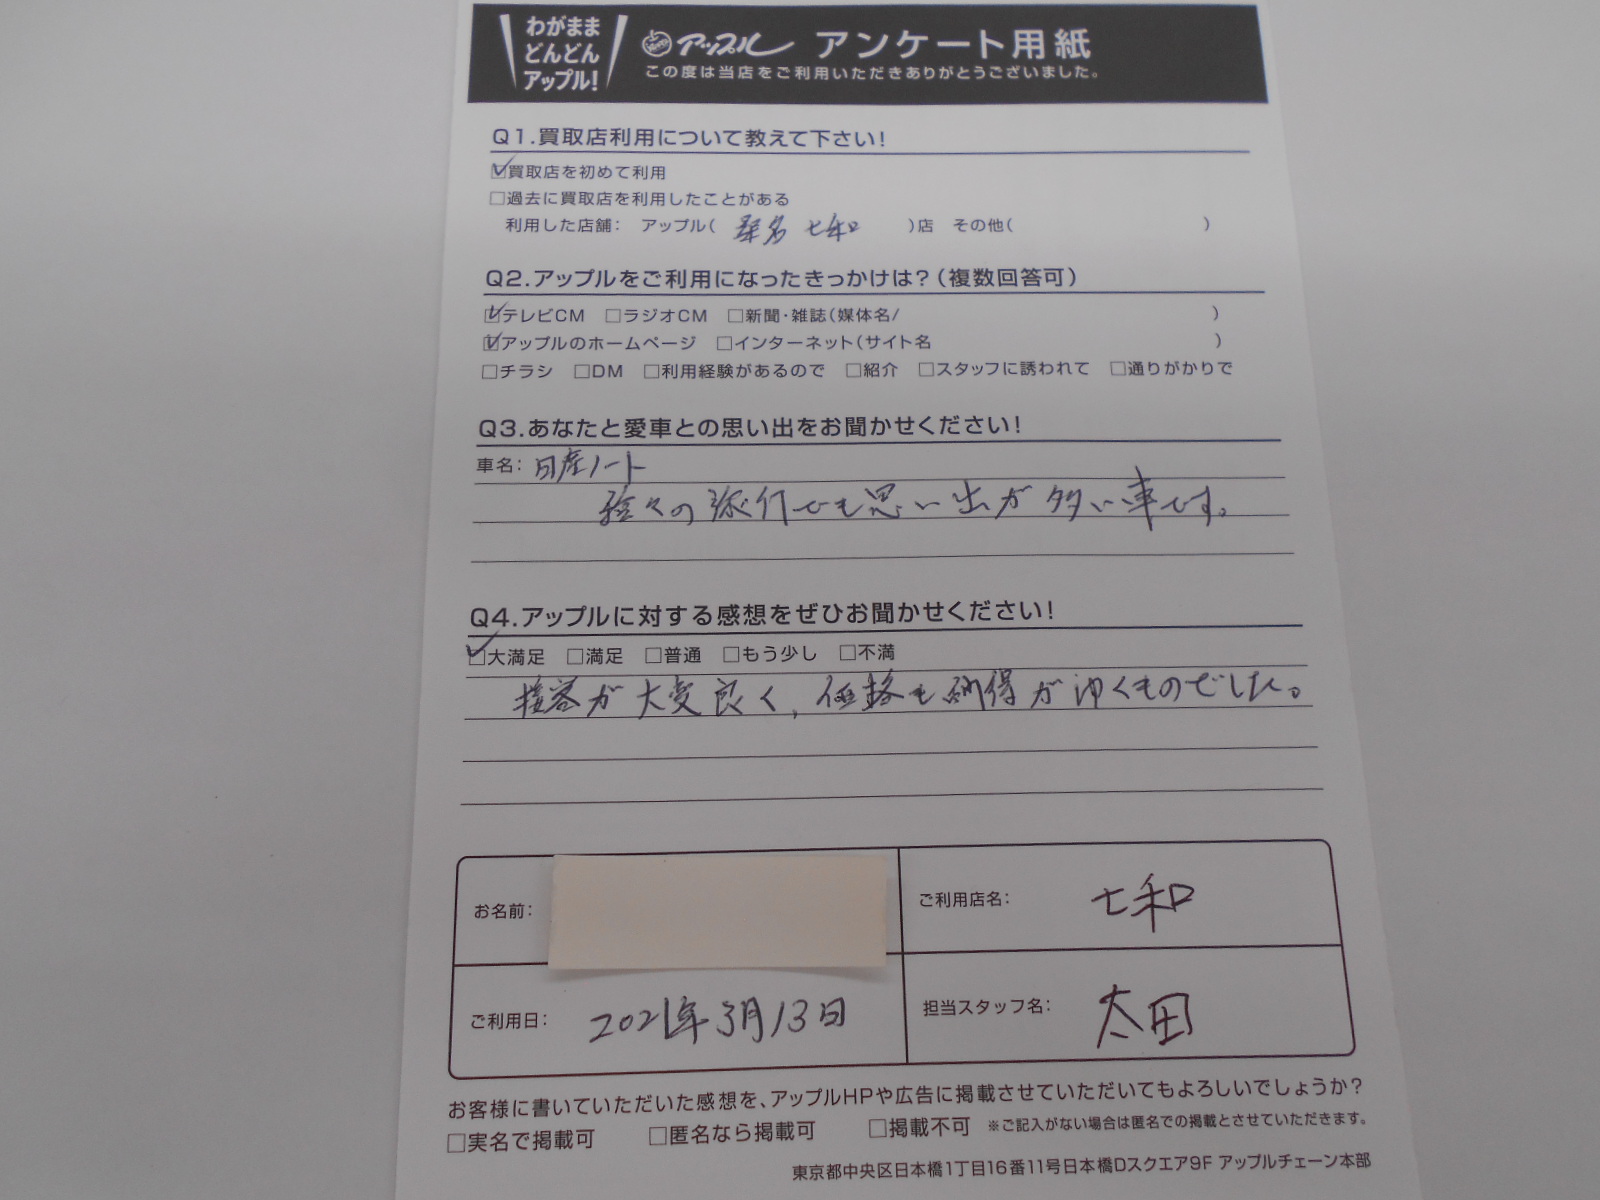 わがまま
どんどん
アップル!
アップル アンケート用紙
この度は当店をご利用いただきありがとうございました。
Q1.買取店利用について教えて下さい!
☑買取店を初めて利用
□過去に買取店を利用したことがある
利用した店舗: アップル( 桑名 七和 )店 その他( )
Q2.アップルをご利用になったきっかけは?(複数回答可)
☑テレビCM □ラジオCM □新聞・雑誌(媒体名/ )
☑アップルのホームページ □インターネット(サイト名 )
□チラシ □DM □利用経験があるので □紹介 □スタッフに誘われて □通りがかりで
Q3.あなたと愛車との思い出をお聞かせください!
車名: 日産ノート
々の旅行でも思い出が多い車です。
Q4.アップルに対する感想をぜひお聞かせください!
☑大満足 □満足 □普通 □もう少し □不満
接客が大変良く、価格も納得がゆくものでした。
お名前:
ご利用店名: 七和
ご利用日: 2021年3月13日
担当スタッフ名: 太田
お客様に書いていただいた感想を、アップルHPや広告に掲載させていただいてもよろしいでしょうか?
□実名で掲載可 □匿名なら掲載可 □掲載不可 ※ご記入がない場合は匿名での掲載とさせていただきます。
東京都中央区日本橋1丁目16番11号日本橋Dスクエア9F アップルチェーン本部